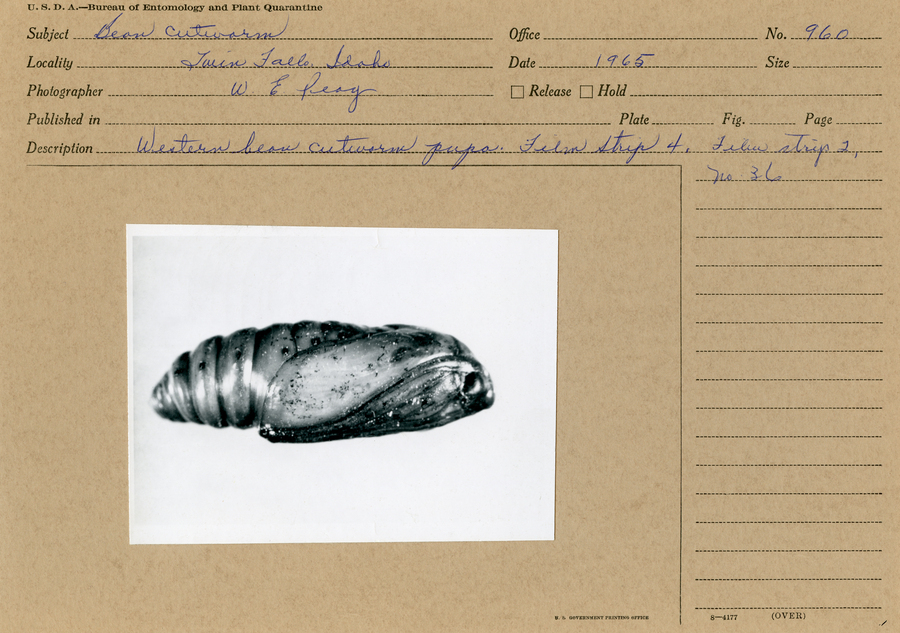 U. S. D. A.—Bureau of Entomology and Plant Quarantine
Subject Bean cutworm Office No. 960
Locality Twin Falls, Idaho Date 1965 Size
Photographer W. E. Peay Release Hold
Published in Plate Fig. Page
Description Western bean cutworm pupa. Film strip 4. Film strip 2,
no 36
U. S. GOVERNMENT PRINTING OFFICE 8—4177 (OVER)